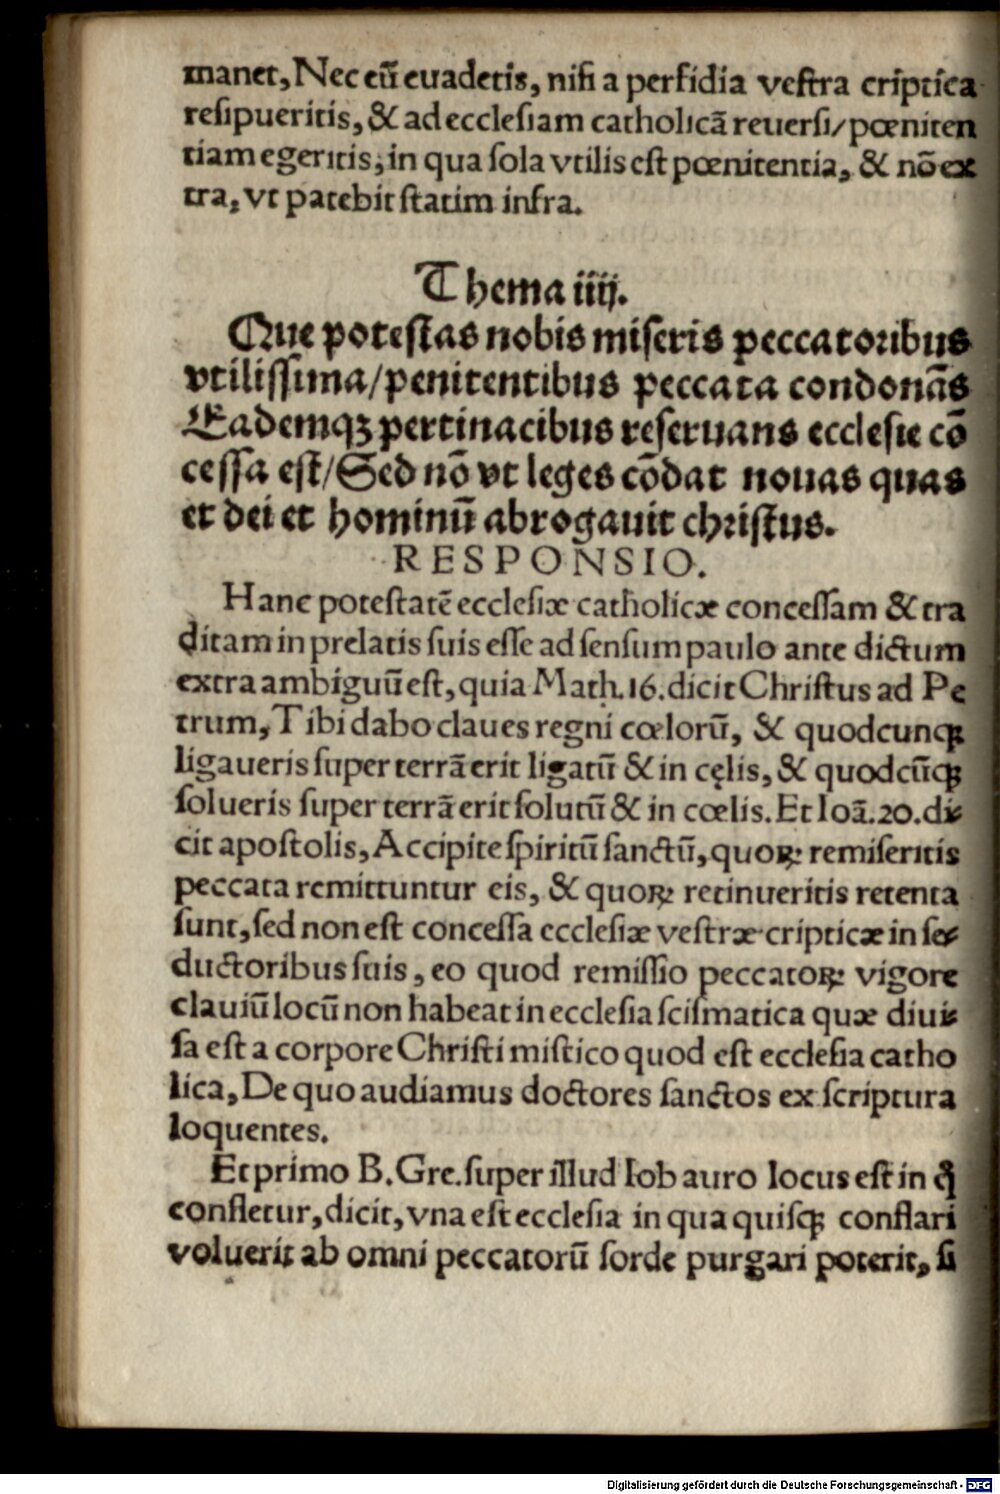 manet, Nec eū euadetis, nisi a perfidia vestra criptica
resipueritis, & ad ecclesiam catholicā reuersi/pœniten
tiam egeritis, in qua sola vtilis est pœnitentia, & nō ex
tra, vt patebit statim infra.
Thema iiij.
Que potestas nobis miseris peccatoribus
vtilissima/penitentibus peccata condonās
Eademqꝫ pertinacibus reseruans ecclesie cō
cessa est/Sed nō vt leges cōdat nouas quas
et dei et hominū abrogauit christus.
RESPONSIO.
Hanc potestatē ecclesiæ catholicæ concessam & tra
ditam in prelatis suis esse ad sensum paulo ante dictum
extra ambiguū est, quia Math.16.dicit Christus ad Pe
trum, Tibi dabo claues regni cœlorū, & quodcunqꝫ
ligaueris super terrā erit ligatū & in cęlis, & quodcūqꝫ
solueris super terrā erit solutū & in cœlis. Et Ioā.20.di-
cit apostolis, Accipite spiritū sanctū, quoꝝ remiseritis
peccata remittuntur eis, & quoꝝ retinueritis retenta
sunt, sed non est concessa ecclesiæ vestræ cripticæ in se-
ductoribus suis, eo quod remissio peccatoꝝ vigore
clauiū locū non habeat in ecclesia scismatica quæ diui-
sa est a corpore Christi mistico quod est ecclesia catho
lica, De quo audiamus doctores sanctos ex scriptura
loquentes.
Et primo B. Gre. super illud Iob auro locus est in q̄
confletur, dicit, vna est ecclesia in qua quisqꝫ conflari
voluerit ab omni peccatorū sorde purgari poterit, si
Digitalisierung gefördert durch die Deutsche Forschungsgemeinschaft - DFG